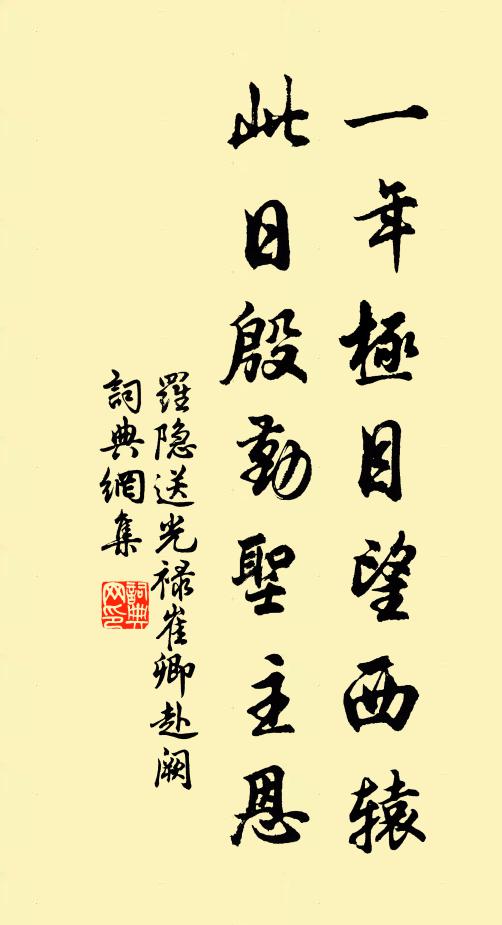 一年極目望西辕
此日殷勤聖主恩
羅隐送光禄崔卿赴阙
詞典網集
詞典网印